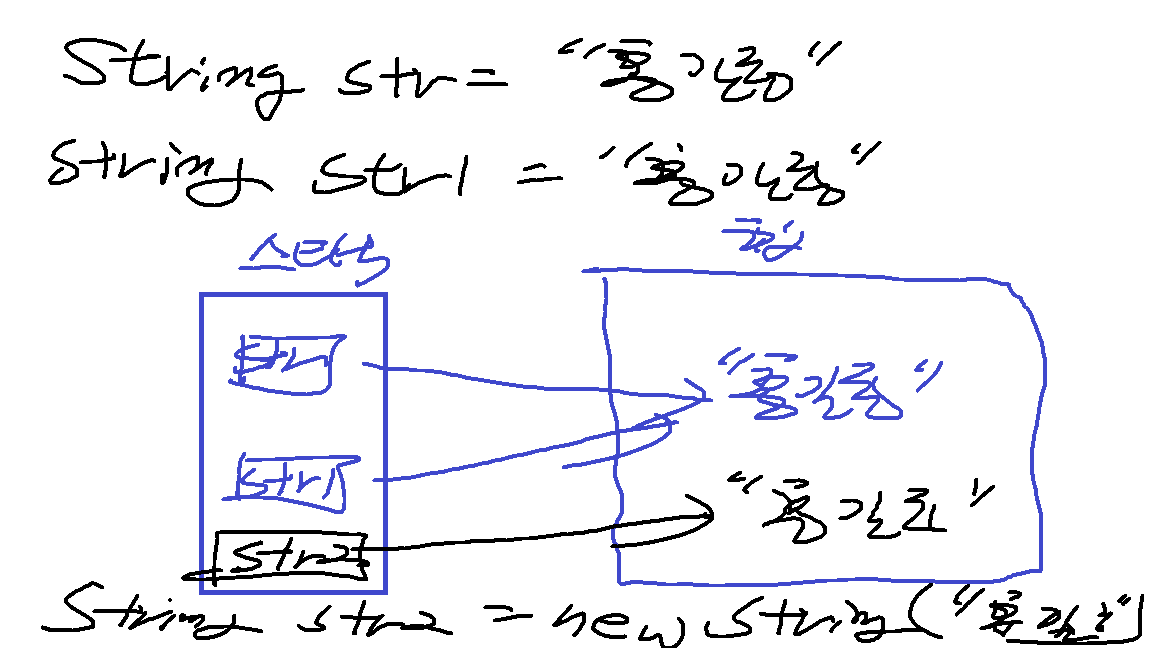 String str = "홍길동"
String str1 = "홍길동"
스택 힙
str "홍길동"
str1
str2 "홍길동"
String str2 = new String("홍길동")